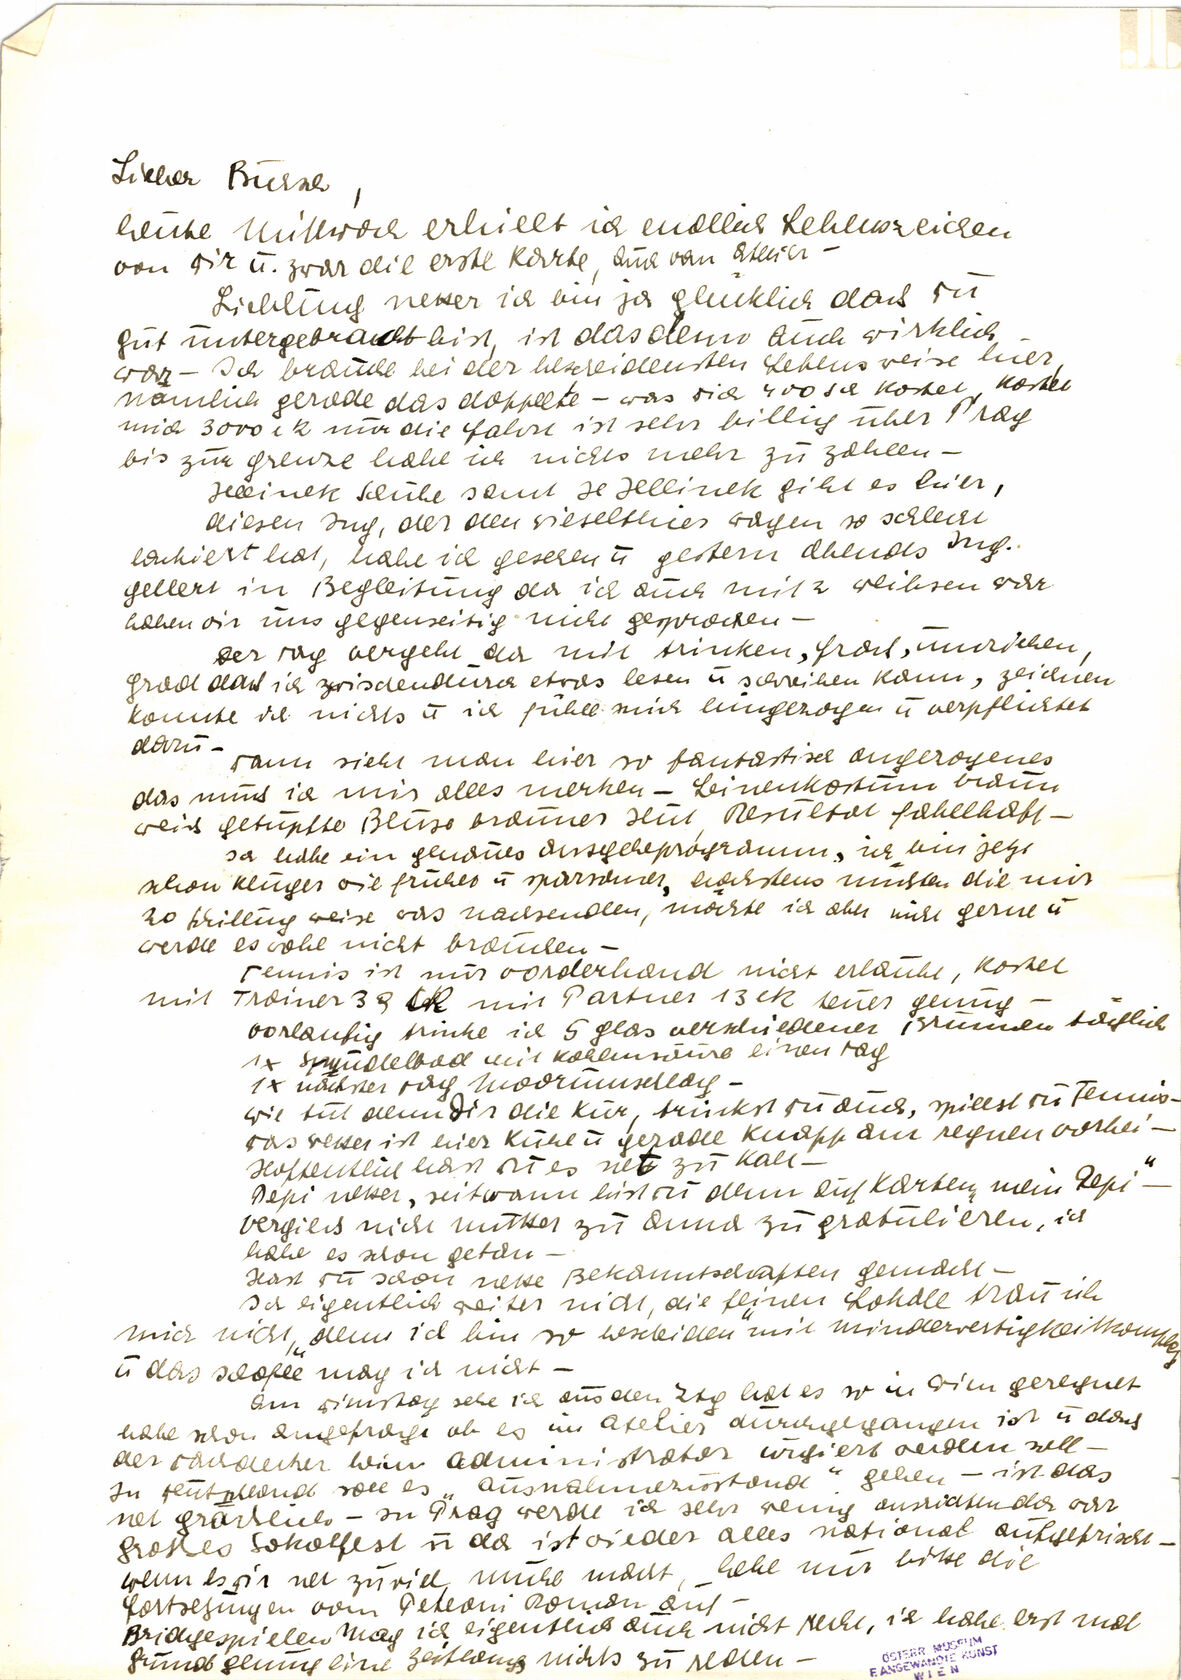 Lieber Bursch,
heute Mittwoch erhielt ich endlich Lebenszeichen
von Dir u. zwar die erste Karte, auch vom Atelier –
Liebling netter ich bin ja glücklich dass Du
gut untergebracht bist, ist das denn auch wirklich
war – Ich brauche bei der bescheidensten Lebensweise hier,
nämlich gerade das doppelte – was dich 400 Sch kostet, kostet
mich 3000 ck nur die Fahrt ist sehr billig über Prag
bis zur Grenze habe ich nichts mehr zu zahlen –
Jellinek Schuhe samt Jellinek gibt es hier,
diesen Ing, der den Wagen so schlecht
lackiert hat, habe ich gesehen u gestern Abends Ing.
Gellert in Begleitung da ich auch mit 2 Weibsen war
haben wir uns gegenseitig nicht gesprochen –
Der Tag vergeht da mit trinken, frass, umziehen,
grad dass ich zwischendurch etwas lesen u schreiben kann, zeichnen
konnte ich nichts u ich fühle mich hingezogen u verpflichtet
dazu –
Dann sieht man hier so fantastisch angezogenes
das muss ich mir alles merken – Leinenkostüm braun
weiss getupfte Bluse brauner Hut, Resultat fabelhaft –
Ich habe ein genaues Ausgabeprogramm, ich bin jetzt
schon klüger wie früher u sparsamer, höchstens müssen die mir
20 Schilling weise was nachsenden, möchte ich aber nicht gerne u
werde es wohl nicht brauchen –
Tennis ist mir vorderhand nicht erlaubt, kostet
mit Trainer 39 ck mit Partner 13 ck teuer genug –
vorläufig trinke ich 5 Glas verschiedener Brunnen täglich
1x Sprudelbad mit Kohlensäure einen Tag
1x nächster Tag Moorumschlag –
wie tut denn Dir die Kur, trinkst Du auch, spielst Du Tennis –
Das Wetter ist hier kühl u gerade knapp am regnen vorbei –
Hoffentlich hast Du es net zu kalt –
Pepi netter, seit wann bist Du denn auf Karten „mein Pepi“ –
vergiess nicht Mutter zu Anna zu gratulieren, ich
habe es schon getan –
Hast Du schon nette Bekanntschaften gemacht –
Ich eigentlich weiter nicht, die feinen Lokale trau ich
mich nicht, denn ich bin so „bescheiden“ mit Minderwertigkeitkomplex
u das „schofle“ mag ich nicht –
Am Dienstag sehe ich aus den Ztg hat es so in Wien geregnet
habe schon angefragt ob es im Atelier durchgegangen ist u dass
der Dachdecker beim Administrator urgiert werden soll –
In Deutschland soll es „Ausnahmezustand“ geben – ist das
net grässlich – In Prag werde ich sehr wenig ausrichten da war
grosses Sokolfest u da ist wieder alles national aufgefrischt –
wenn es Dir net zuviel Mühe macht, hebe mir bitte die
Fortsetzungen vom Roman auf –
Bridgespielen mag ich eigentlich auch nicht recht, ich habe erst mal
Grund genug eine Zeitlang nichts zu reden –
ÖSTERR. MUSEUM
F. ANGEWANDTE KUNST
WIEN